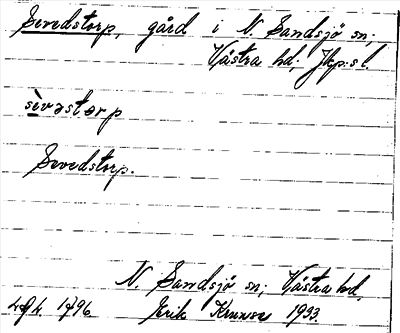 Sevedstorp, gård i N. Sandsjö sn;
Västra hd; Jkp:s l.
sèvəstərp
Sevedstorp.
N. Sandsjö sn; Västra hd,
1796 Erik 1933.